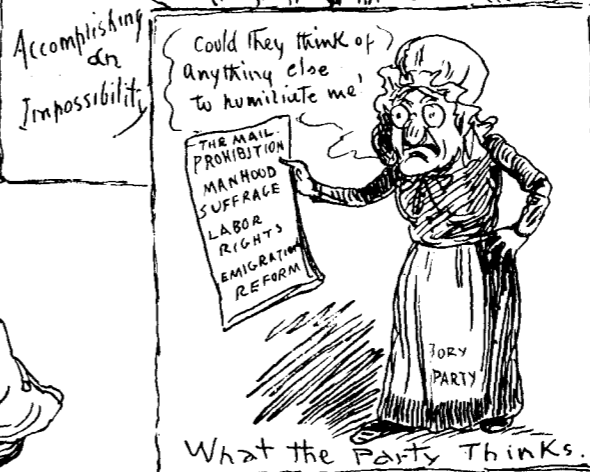 Accomplishing
an
Impossibility
Could they think of
anything else
to humiliate me!
THE MAIL.
PROHIBITION
MANHOOD
SUFFRAGE
LABOR
RIGHTS
EMIGRATION
REFORM
TORY
PARTY
What the Party Thinks.